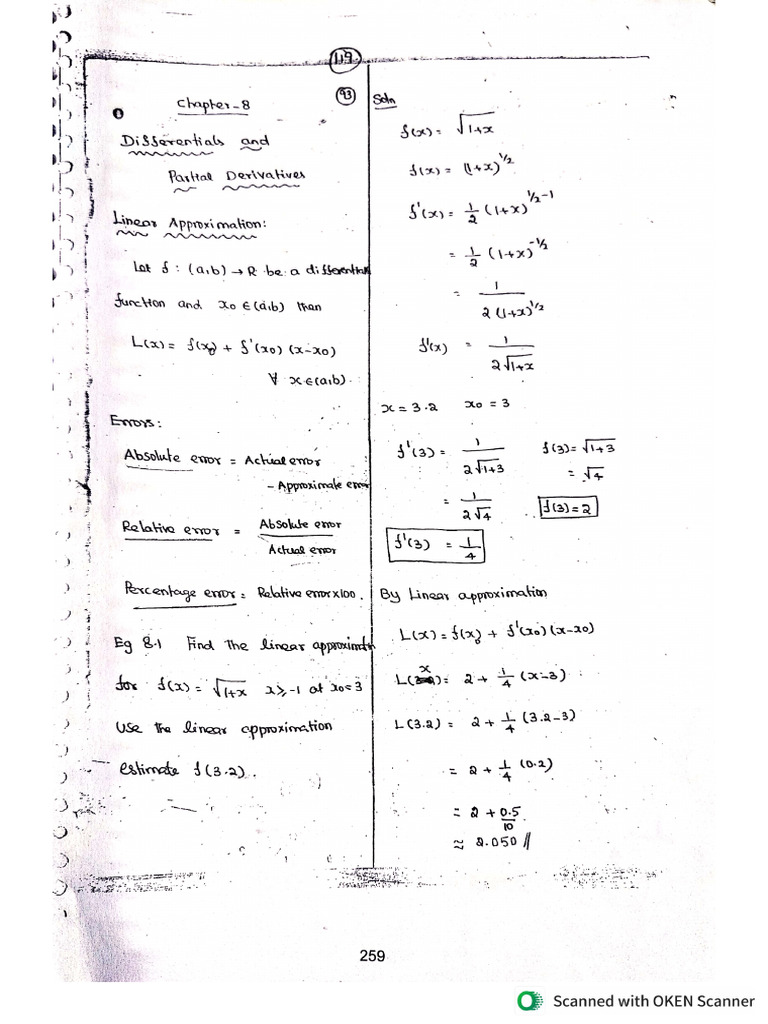 119
Chapter-8
Differentials and
Partial Derivatives
Linear Approximation:
Let f : (a,b) → R be a differential
function and x₀ ∈ (a,b) then
L(x) = f(x₀) + f'(x₀) (x-x₀)
∀ x∈(a,b).
Errors:
Absolute error = Actual error
- Approximate error
Relative error = Absolute error / Actual error
Percentage error = Relative error x 100.
Eg 8.1 Find the linear approximatn
for f(x) = √1+x x ≥ -1 at x₀=3
Use the linear approximation
estimate f(3.2).
93
Soln
f(x) = √1+x
f(x) = (1+x)^1/2
f'(x) = 1/2 (1+x)^1/2-1
= 1/2 (1+x)^-1/2
= 1 / 2(1+x)^1/2
f'(x) = 1 / 2√1+x
x = 3.2 x₀ = 3
f'(3) = 1 / 2√1+3 f(3) = √1+3
= √4
= 1 / 2√4 f(3) = 2
f'(3) = 1/4
By Linear approximation
L(x) = f(x₀) + f'(x₀) (x-x₀)
L(x) = 2 + 1/4 (x-3)
L(3.2) = 2 + 1/4 (3.2-3)
= 2 + 1/4 (0.2)
= 2 + 0.5/10
≈ 2.050 //
259
Scanned with OKEN Scanner